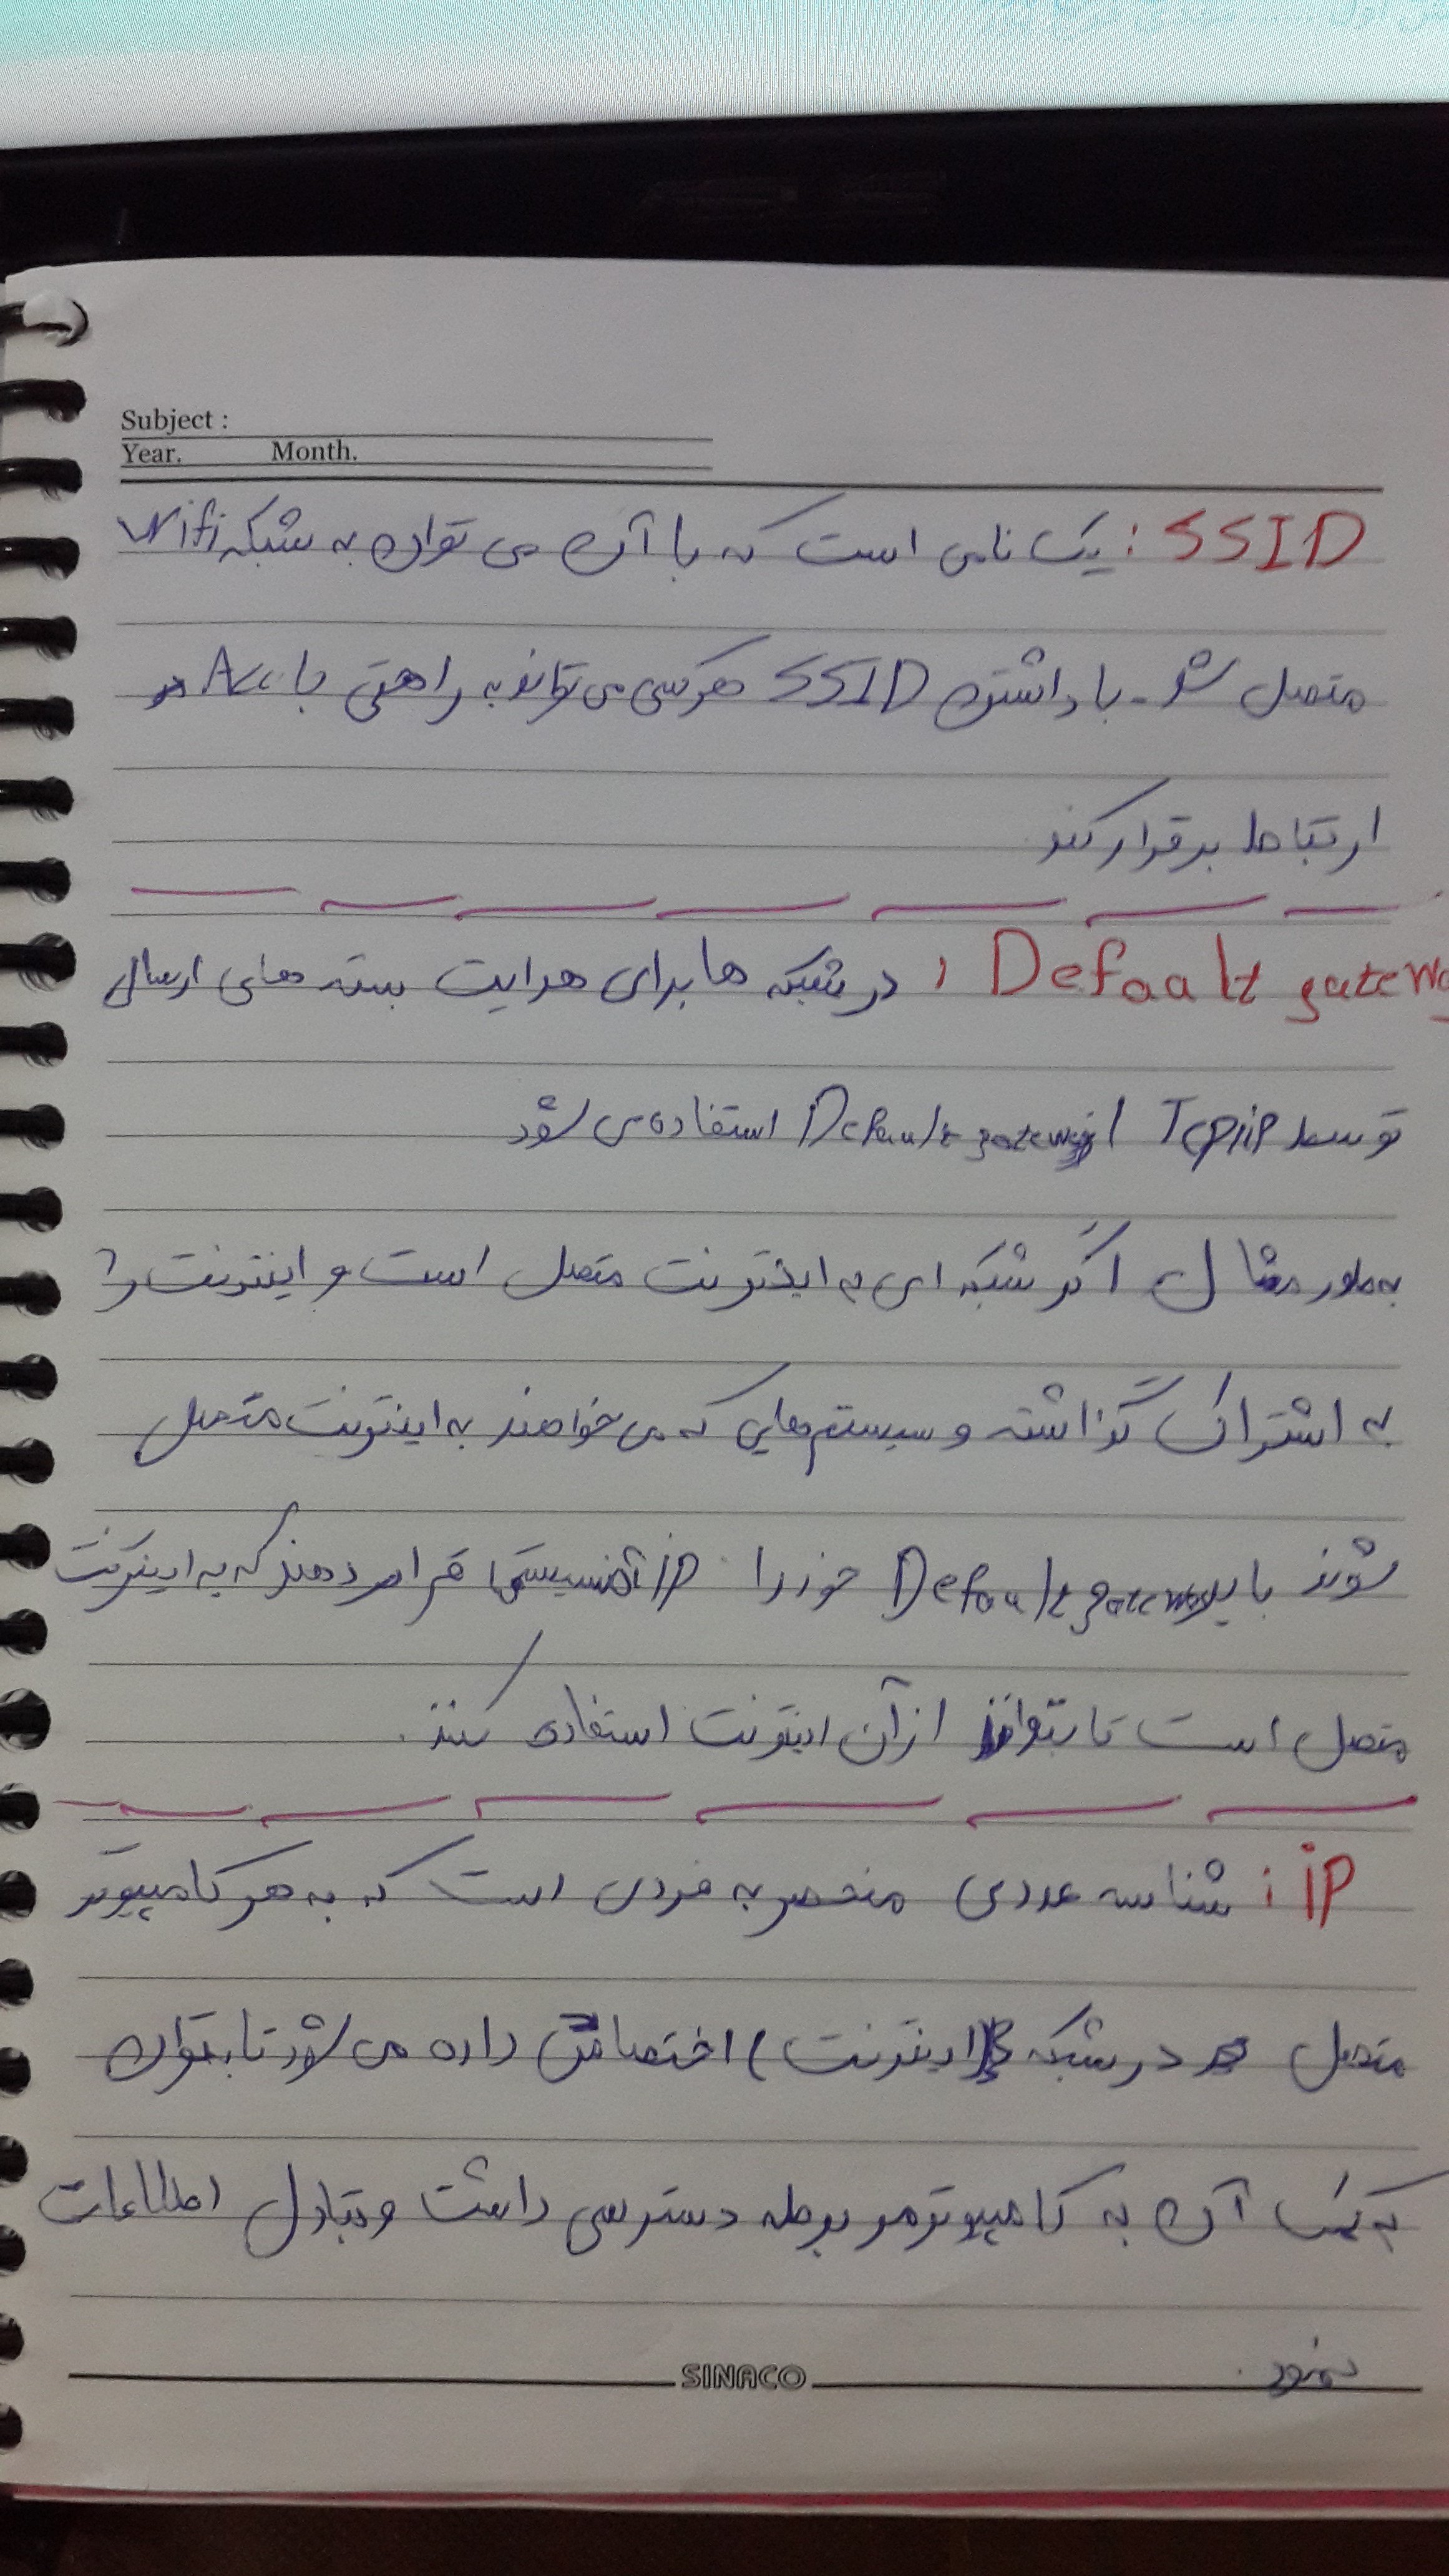 Subject :
Year. Month.
SSID : یک نامی است که با آن می توان به شبکه Wifi
متصل شد - با داشتن SSID هرکسی می تواند به راحتی با Acc
ارتباط برقرار کند
Defaalt gatewa : در شبکه ها برای هدایت بسته های ارسالی
توسط Tcp/ip از Default gateway استفاده می شود
به طور مثال اگر شبکه ای به اینترنت متصل است و اینترنت را
به اشتراک گذاشته و سیستم هایی که می خواهند به اینترنت متصل
شوند باید Default gateway خود را ip سیستمی قرار دهند که به اینترنت
متصل است تا بتوانند از آن اینترنت استفاده کنند.
ip : شناسه عددی منحصر به فردی است که به هر کامپیوتر
متصل در شبکه (اینترنت) اختصاص داده می شود تا بتوان
به کمک آن به کامپیوتر مربوطه دسترسی داشت و تبادل اطلاعات
نمود.
SINACO